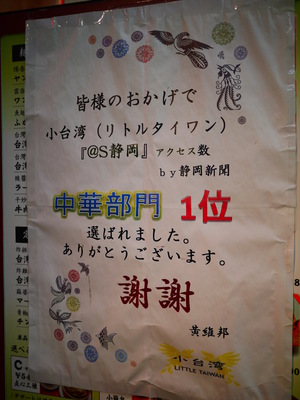 皆様のおかげで
小台湾（リトルタイワン）
『@S静岡』アクセス数
by静岡新聞
中華部門 1位
選ばれました。
ありがとうございます。
謝謝
黃維邦
小台湾
LITTLE TAIWAN